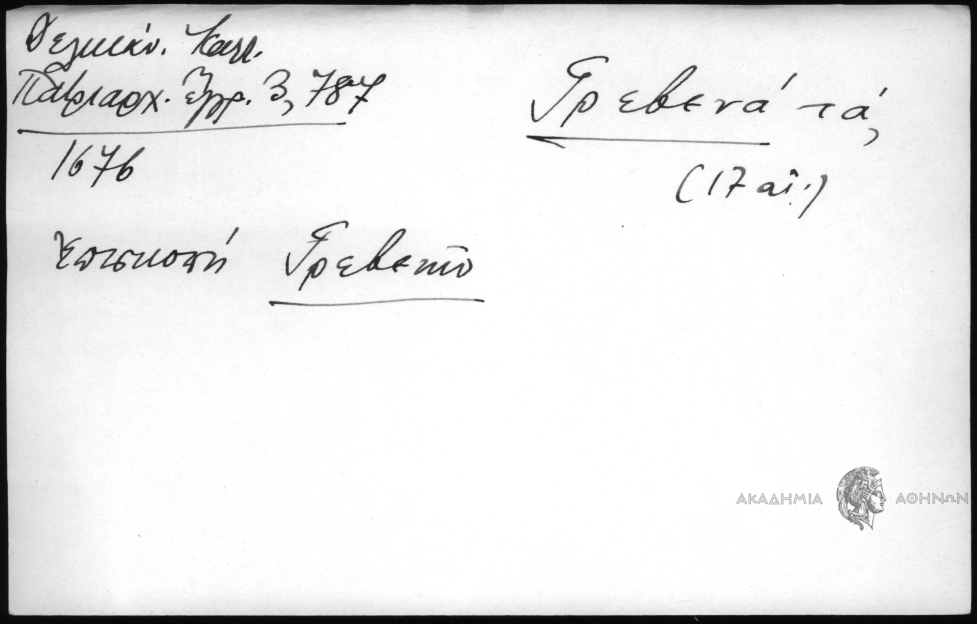 Δελικάν. Καλλ.
Πατριαρχ. Ἔγγρ. 3, 787
1676
Γρεβενά τά,
(17 αἰ.)
Ἐπισκοπή Γρεβενῶ
ΑΚΑΔΗΜΙΑ ΑΘΗΝΩΝ